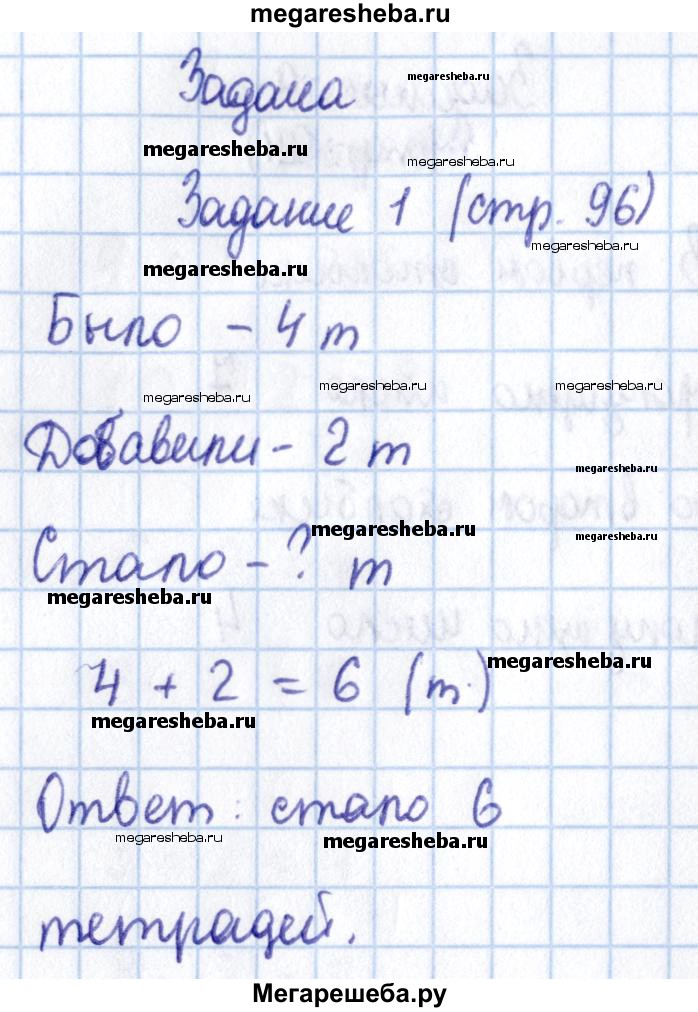 megaresheba.ru
Задача
megaresheba.ru
megaresheba.ru
megaresheba.ru
Задание 1 (стр. 96)
megaresheba.ru
megaresheba.ru
Было - 4 т
megaresheba.ru
megaresheba.ru
megaresheba.ru
Добавили - 2 т
megaresheba.ru
megaresheba.ru
megaresheba.ru
Стало - ? т
megaresheba.ru
megaresheba.ru
4 + 2 = 6 (т.)
megaresheba.ru
Ответ: стало 6
megaresheba.ru
megaresheba.ru
тетрадей.
Мегарешеба.ру